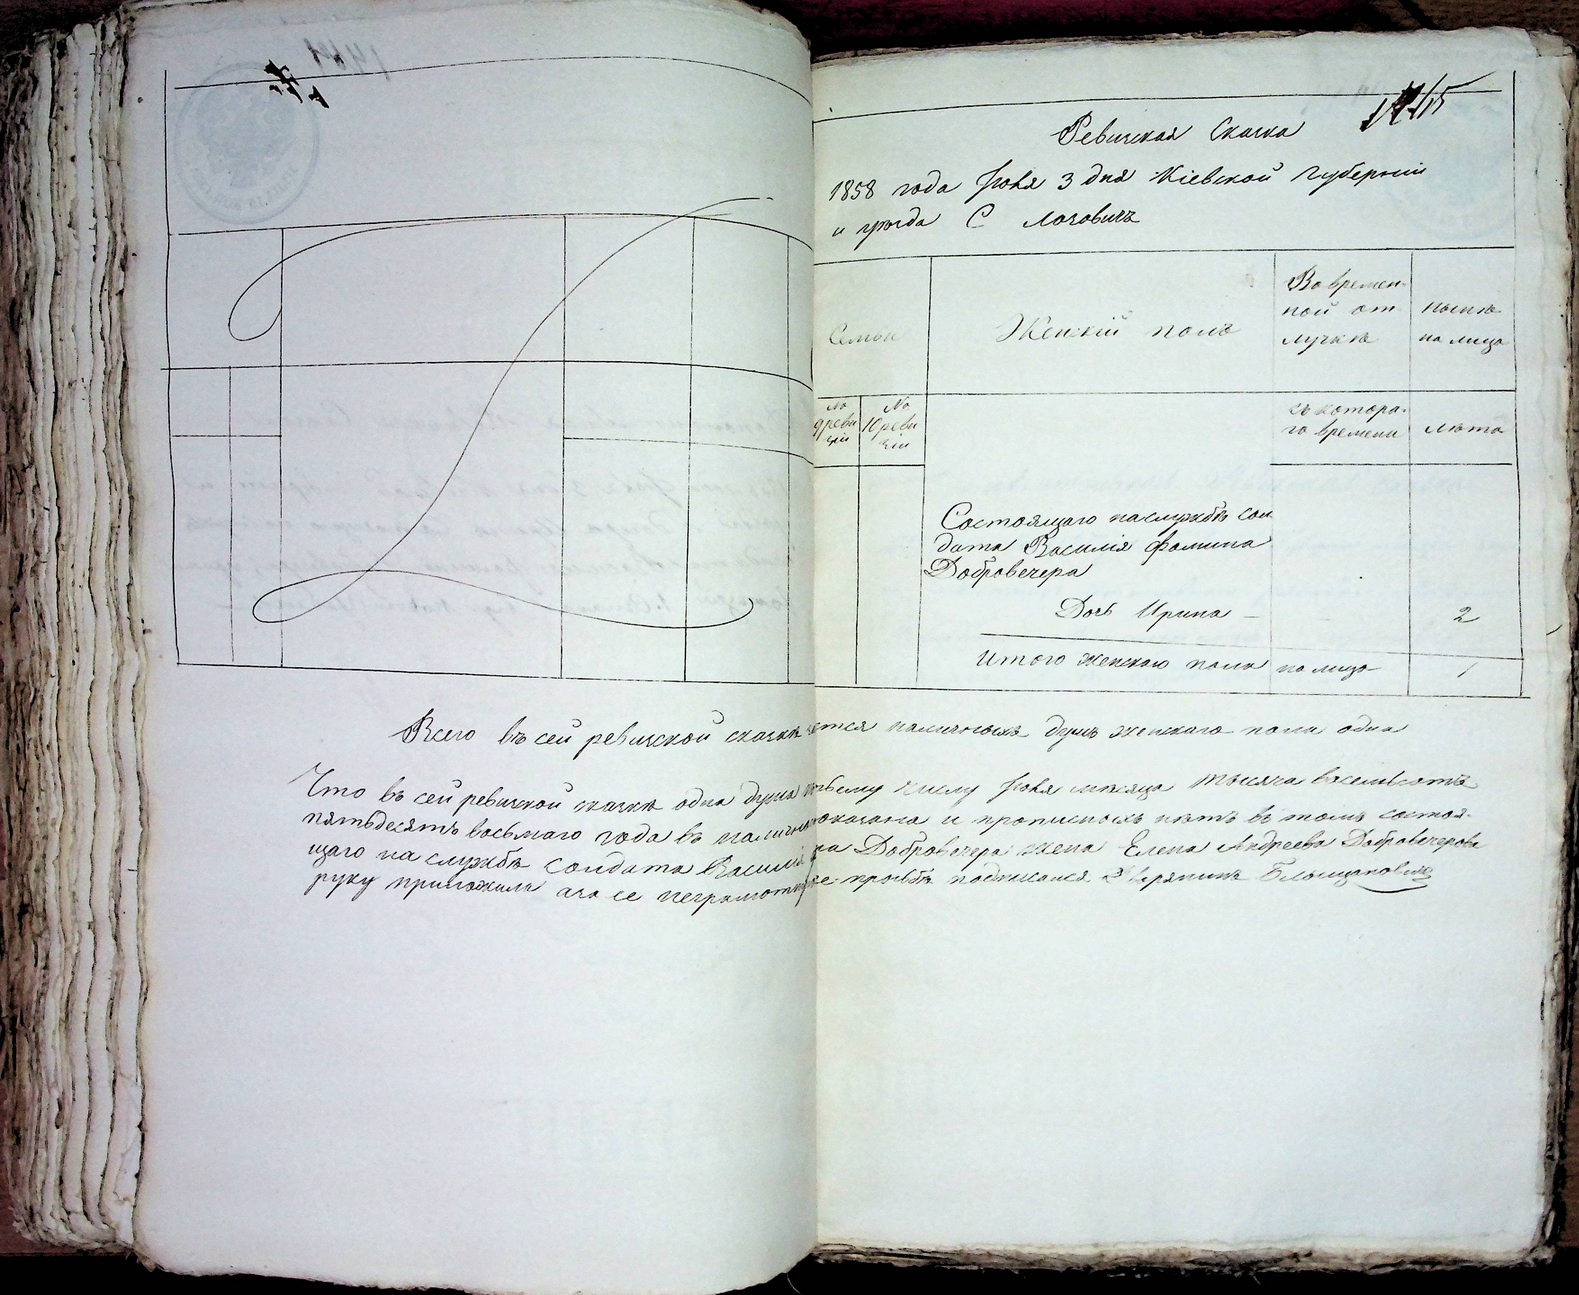 1415
Ревизская Сказка
1858 года Іюня 3 дня Кіевской губерніи
и уезда С Мочовичъ
Семьи
Женскій полъ
Во времен-
ной от
лучкѣ
нынѣ
на лицо
№
9 реви
зіи
№
10 реви
зіи
съ котора-
го времени
лѣта
Состоящаго на службѣ сол
дата Василія Фомина
Добровечера
Дочь Ирина - 2
Итого женскаго пола на лицо 1
Всего въ сей ревизской сказкѣ наличныхъ душъ женскаго пола одна
Что въ сей ревизской сказкѣ одна душа къ числу Іюня мѣсяца тысяча восемьсотъ
пятьдесятъ восьмаго года въ показана и прописныхъ нѣтъ въ томъ состоя-
щаго на службѣ солдата Василія Добровечера жена Елена Андреева Добровечерова
руку приложила а за ее прозьбѣ подписался Дворянинъ